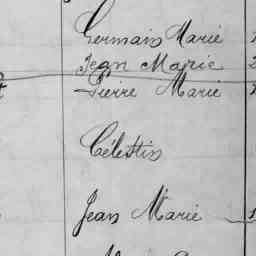 Germain Marie
Jean Marie
Pierre Marie
Célestin
Jean Marie